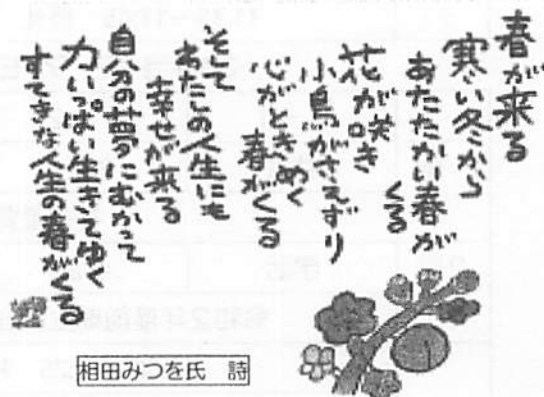 春が来る
寒い冬から
あたたかい春が
くる
花が咲き
小鳥がさえずり
心がときめく
春がくる
そして
あなたの人生にも
幸せが来る
自分の夢にむかって
力いっぱい生きてゆく
すてきな人生の春がくる
相田みつを氏 詩